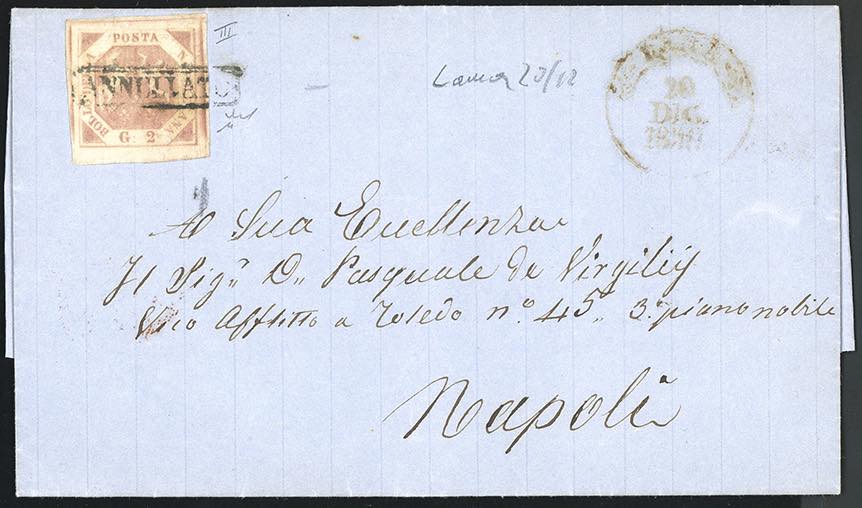 POSTA NA
BOLLO
ANA
G. 2
ANNULLATO
III
20/12
20
DIC.
A Sua Eccellenza
Il Sig.r D.n Pasquale de Virgilij
Vico Afflitto a Toledo n.o 45, 3.o piano nobile
Napoli